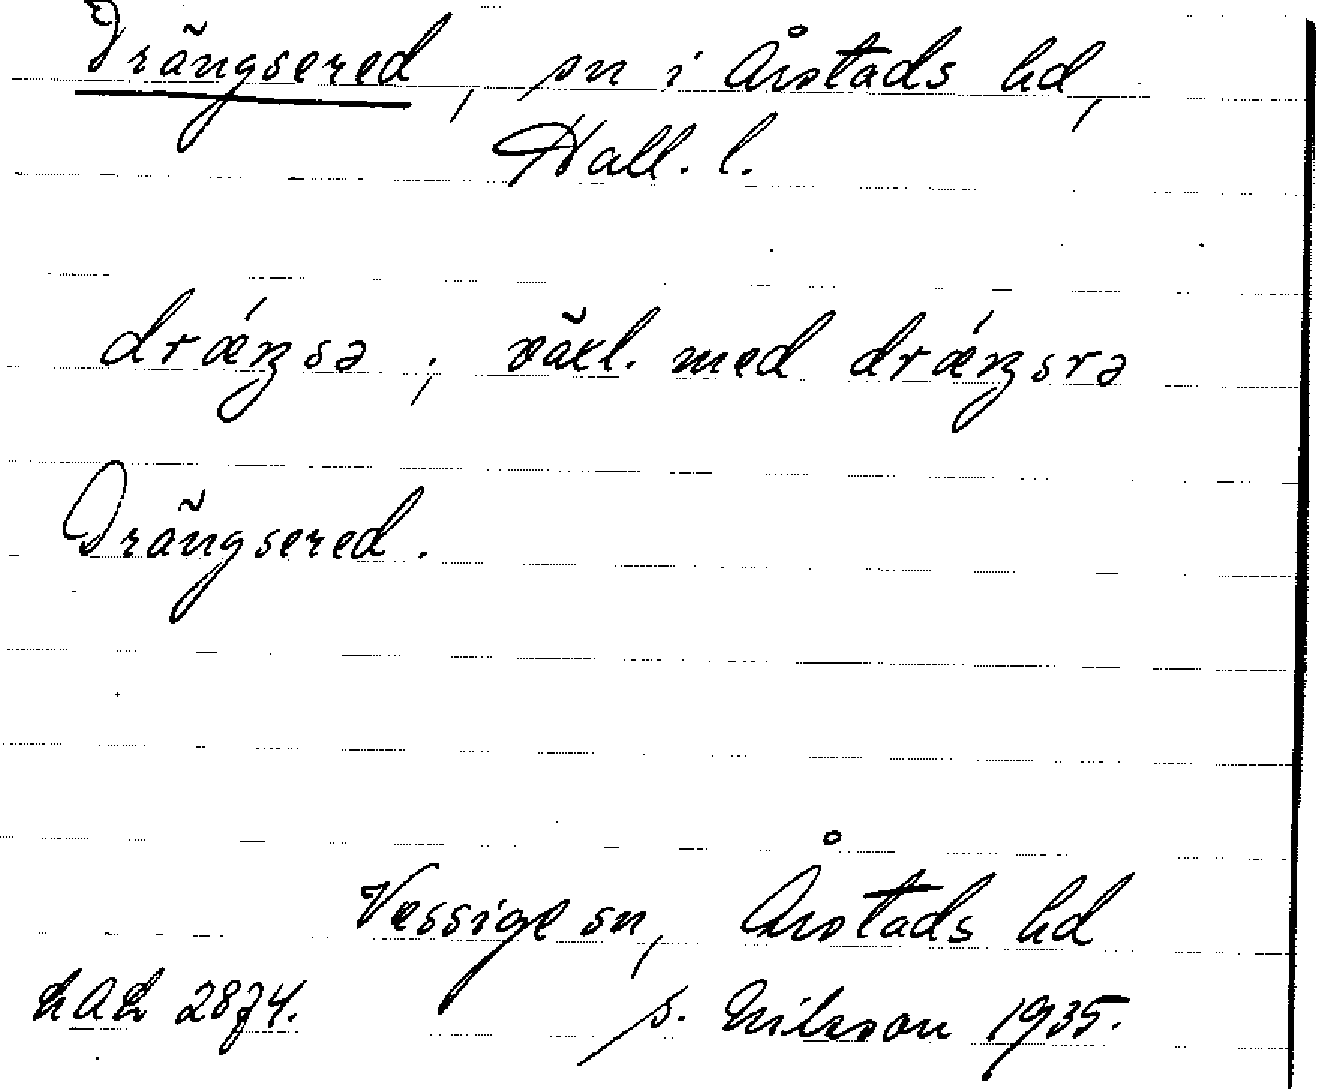 Drängsered, sn i Årstads hd,
Hall. l.
drǽŋsə; växl. med drǽŋsrə
Drängsered.
Vessige sn, Årstads hd
LAL 2874. S. Nilsson 1935.